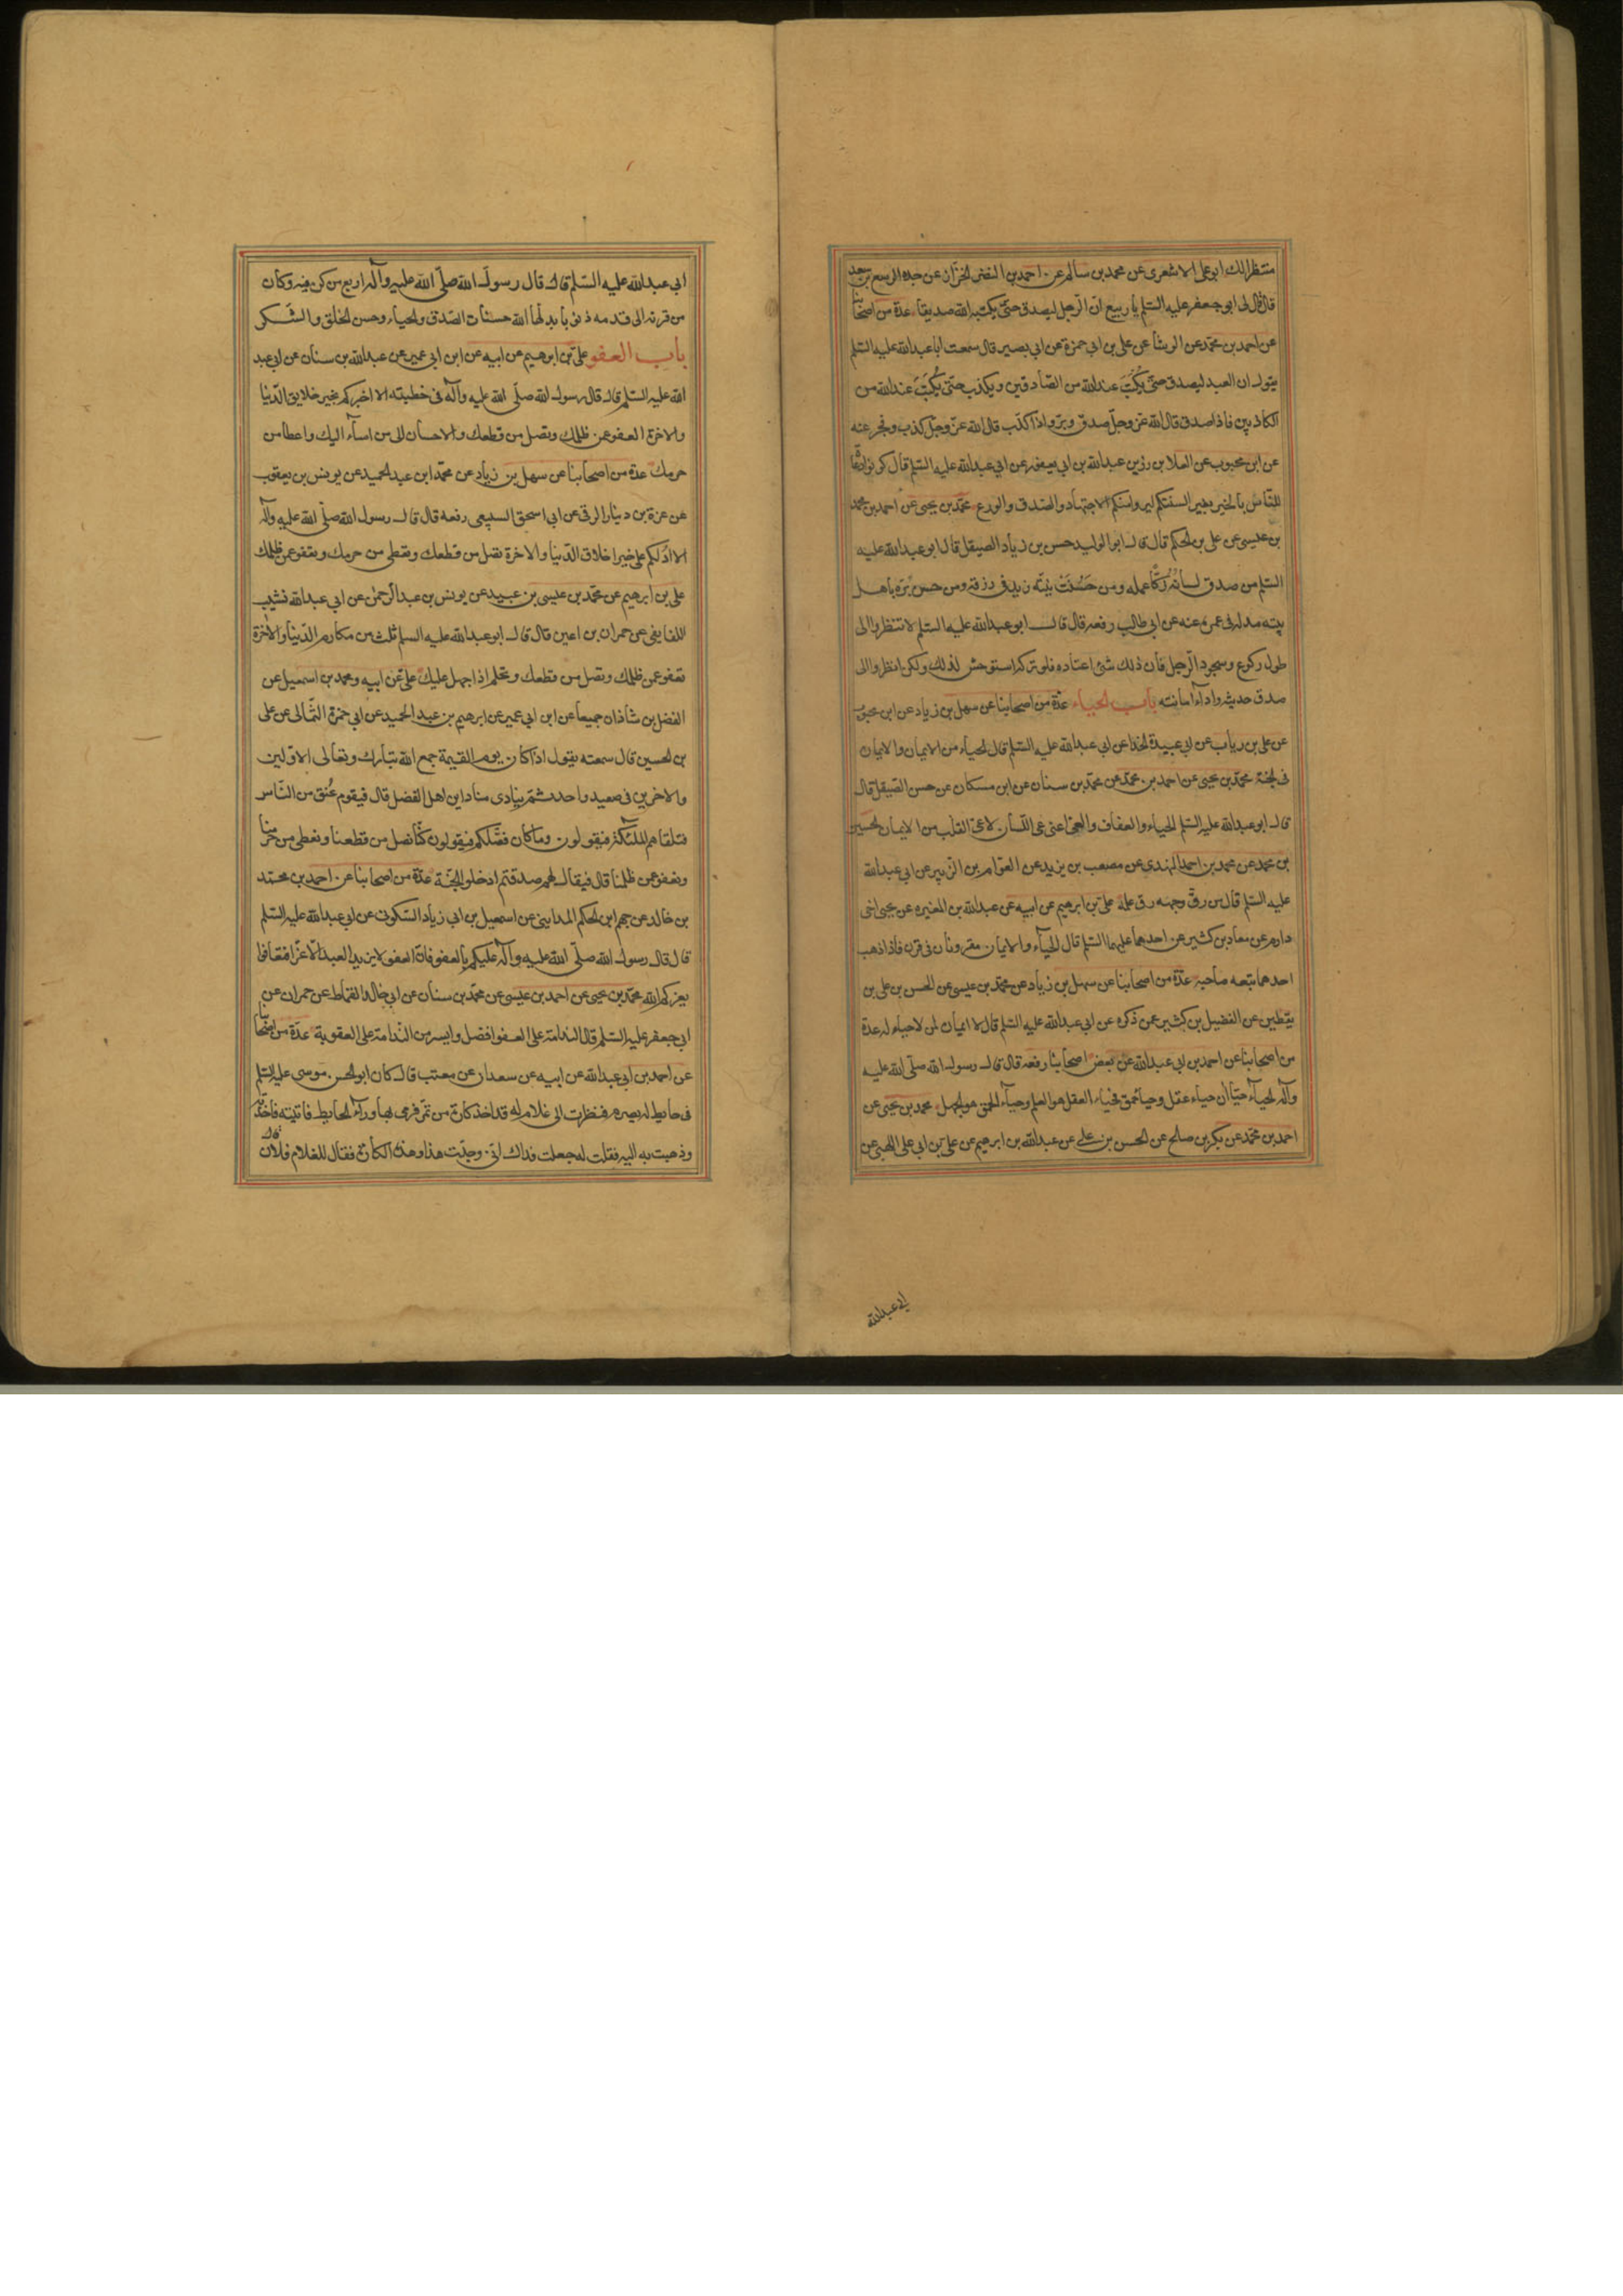 منتظرا لك ابو على الاشعرى عن محمد بن سالم عن احمد بن النضر الخزاز عن جده الربيع بن سعد
قال قال لى ابو جعفر عليه السلم يا ربيع ان الرجل ليصدق حتى يكتبه الله صديقا عدة من اصحابنا
عن احمد بن محمد عن الوشا عن على بن ابى حمزة عن ابى بصير قال سمعت ابا عبد الله عليه السلم
يقول ان العبد ليصدق حتى يكتب عند الله من الصادقين ويكذب حتى يكتب عند الله من
الكاذبين فاذا صدق قال الله عز وجل صدق وبر واذا كذب قال الله عز وجل كذب وفجر عنه
عن ابن محبوب عن العلا بن رزين عبد الله بن ابى يعفور عن ابى عبد الله عليه السلم قال كونوا دعاة
للناس بالخير بغير السنتكم ليروا منكم الاجتهاد والصدق والورع محمد بن يحيى عن احمد بن محمد
بن عيسى عن على بن الحكم قال قال ابو الوليد حسن بن زياد الصيقل قال ابو عبد الله عليه
السلم من صدق لسانه زكا عمله ومن حسنت نيته زيد فى رزقه ومن حسن بره باهل
بيته مد له فى عمره عنه عن ابى طالب رفعه قال قال ابو عبد الله عليه السلم لا تنظروا الى
طول ركوع وسجود الرجل فان ذلك شئ اعتاده فلو تركه استوحش لذلك ولكن انظروا الى
صدق حديثه واداء امانته باب الحياء عدة من اصحابنا عن سهل بن زياد عن ابن محبوب
عن على بن رياب عن ابى عبيدة الحذا عن ابى عبد الله عليه السلم قال الحياء من الايمان والايمان
فى الجنة محمد بن يحيى عن احمد بن محمد عن محمد بن سنان عن ابن مسكان عن حسن الصيقل قال
قال ابو عبد الله عليه السلم الحياء والعفاف والعى اعنى عى اللسان لا عى القلب من الايمان الحسين
بن محمد عن محمد بن احمد النهدى عن مصعب بن يزيد عن العوام بن الزبير عن ابى عبد الله
عليه السلم قال من رق وجهه رق علمه على بن ابرهيم عن ابيه عن عبد الله بن المغيره عن يحيى اخى
دارم عن معاذ بن كثير عن احدهما عليهما السلم قال الحياء والايمان مقرونان فى قرن فاذا ذهب
احدهما تبعه صاحبه عدة من اصحابنا عن سهل بن زياد عن محمد بن عيسى عن الحسن بن على بن
يقطين عن الفضيل بن كثير عمن ذكره عن ابى عبد الله عليه السلم قال لا ايمان لمن لا حياء له عدة
من اصحابنا عن احمد بن ابى عبد الله عن بعض اصحابنا رفعه قال قال رسول الله صلى الله عليه
وآله الحياء حياآن حياء عقل وحياء حمق فحياء العقل هو العلم وحياء الحمق هو الجهل محمد بن يحيى عن
احمد بن محمد عن بكر بن صالح عن الحسن بن على عن عبد الله بن ابرهيم عن على بن ابى على اللهبى عن
ابى عبد الله
ابى عبد الله عليه السلم قال قال رسول الله صلى الله عليه وآله اربع من كن فيه وكان
من قرنه الى قدمه ذنوبا بدلها الله حسنات الصدق والحياء وحسن الخلق والشكر
باب العفو على بن ابرهيم عن ابيه عن ابن ابى عمير عن عبد الله بن سنان عن ابى عبد
الله عليه السلم قال قال رسول الله صلى الله عليه وآله فى خطبته الا اخبركم بخير خلايق الدنيا
والاخرة العفو عمن ظلمك وتصل من قطعك والاحسان الى من اساء اليك واعطا من
حرمك عدة من اصحابنا عن سهل بن زياد عن محمد ابن عبد الحميد عن يونس بن يعقوب
عن عزة بن دينار الرقى عن ابى اسحق السبيعى رفعه قال قال رسول الله صلى الله عليه وآله
الا ادلكم على خير اخلاق الدنيا والاخرة تصل من قطعك وتعطى من حرمك وتعفو عمن ظلمك
على بن ابرهيم عن محمد بن عيسى بن عبيد عن يونس بن عبد الرحمن عن ابى عبد الله نشيب
اللفايفى عن حمران بن اعين قال قال ابو عبد الله عليه السلم ثلث من مكارم الدنيا والاخرة
تعفو عمن ظلمك وتصل من قطعك وتحلم اذا جهل عليك على عن ابيه ومحمد بن اسمعيل عن
الفضل بن شاذان جميعا عن ابن ابى عمير عن ابرهيم بن عبد الحميد عن ابى حمزة الثمالى عن على
بن الحسين قال سمعته يقول اذا كان يوم القيمة جمع الله تبارك وتعالى الاولين
والاخرين فى صعيد واحد ثم ينادى مناد اين اهل الفضل قال فيقوم عنق من الناس
فتلقاهم الملئكة فيقولون وما كان فضلكم فيقولون كنا نصل من قطعنا ونعطى من حرمنا
ونعفو عمن ظلمنا قال فيقال لهم صدقتم ادخلوا الجنة عدة من اصحابنا عن احمد بن محمد
بن خالد عن جهم ابن الحكم المداينى عن اسمعيل بن ابى زياد السكونى عن ابى عبد الله عليه السلم
قال قال رسول الله صلى الله عليه وآله عليكم بالعفو فان العفو لا يزيد العبد الا عزا فتعافوا
يعزكم الله محمد بن يحيى عن احمد بن عيسى عن محمد بن سنان عن ابى خالد القماط عن حمران عن
ابى جعفر عليه السلم قال الندامة على العفو افضل وايسر من الندامة على العقوبة عدة من اصحابنا
عن احمد بن ابى عبد الله عن ابيه عن سعدان عن معتب قال كان ابو الحسن موسى عليه السلم
فى حايط له يصرم فنظرت الى غلام له قد اخذ كارة من تمر فرمى بها وراء الحايط فاتيته فاخذته
وذهبت به اليه فقلت له جعلت فداك انى وجدت هذا وهذه الكارة فقال للغلام فلان قال